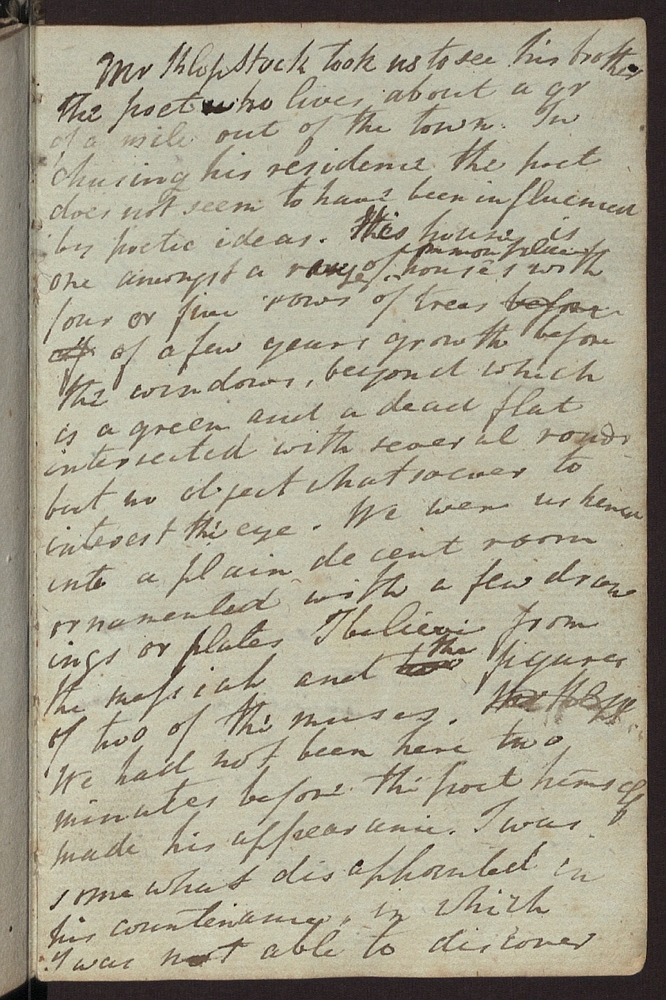 Mr Klopstock took us to see his brother
the poet who lives about a qr
of a mile out of the town. In
chusing his residence the poet
does not seem to have been influenced
by poetic ideas. His house is
one amongst a range of common place houses with
four or five rows of trees before
of a few years growth before
the windows, beyond which
is a green and a dead flat
intersected with several roads
but no object whatsoever to
interest the eye. We were ushered
into a plain decent room
ornamented with a few draw
ings or plates I believe from
the messiah and the figures
of two of the muses. Mr Klop
We had not been here two
minutes before the poet himself
made his appearance. I was
somewhat disappointed in
his countenance, in which
I was not able to discover